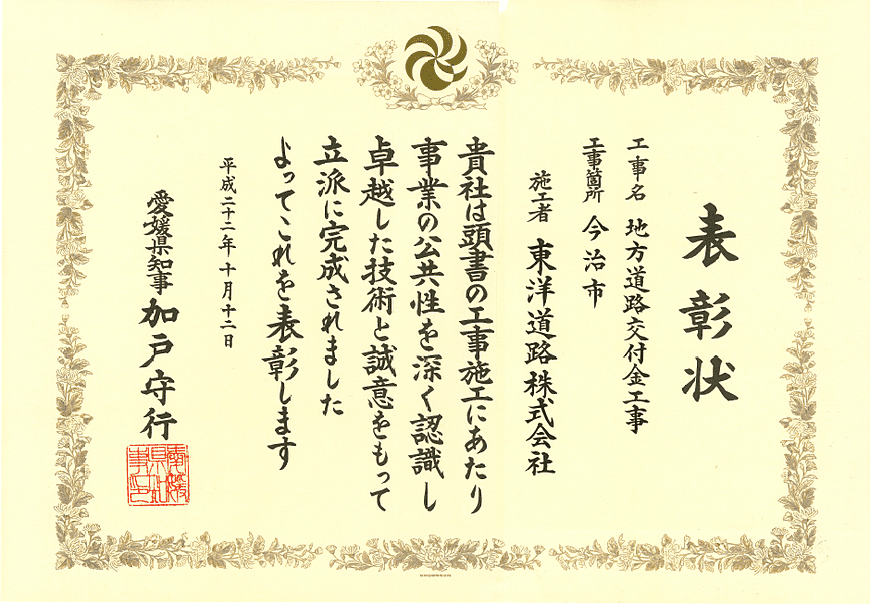 表彰状
工事名 地方道路交付金工事
工事箇所 今治市
施工者 東洋道路株式会社
貴社は頭書の工事施工にあたり
事業の公共性を深く認識し
卓越した技術と誠意をもって
立派に完成されました
よってこれを表彰します
平成二十二年十月十二日
愛媛県知事 加戸守行
愛媛県知事之印